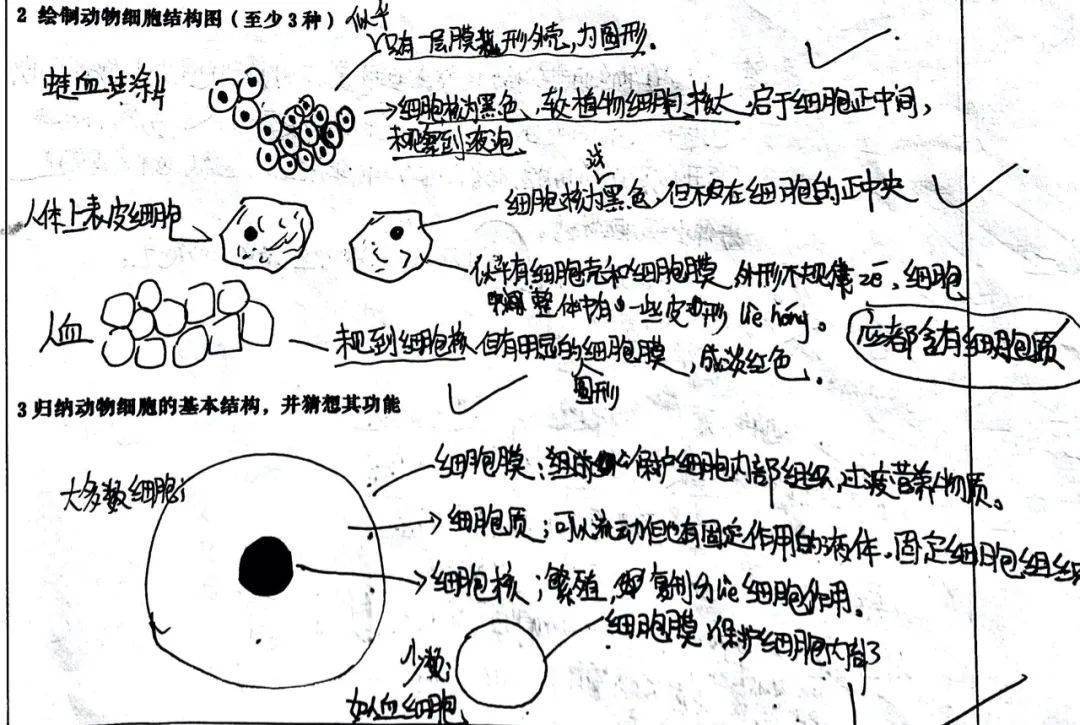 2 绘制动物细胞结构图（至少3种）
似乎
只有一层膜 形外壳，为圆形.
蛙血 涂片
细胞核为黑色，较植物细胞核大，居于细胞正中间，
未观察到液泡
人体上表皮细胞
浅
细胞核为黑色，但不在细胞的正中央
似乎有细胞壳和细胞膜，外形不规律 zé，细胞
整体中有一些皮形 liè hóng。
人血
未见到细胞核 但有明显的细胞膜，成淡红色.
圆形
应都含有细胞质
3 归纳动物细胞的基本结构，并猜想其功能
大多数细胞；
细胞膜：保护细胞内部组织，过滤营养物质。
细胞质；可以流动但也有固定作用的液体.固定细胞组织
细胞核；繁殖，复制分liè细胞作用。
少数；
如人血细胞
细胞膜：保护细胞内部